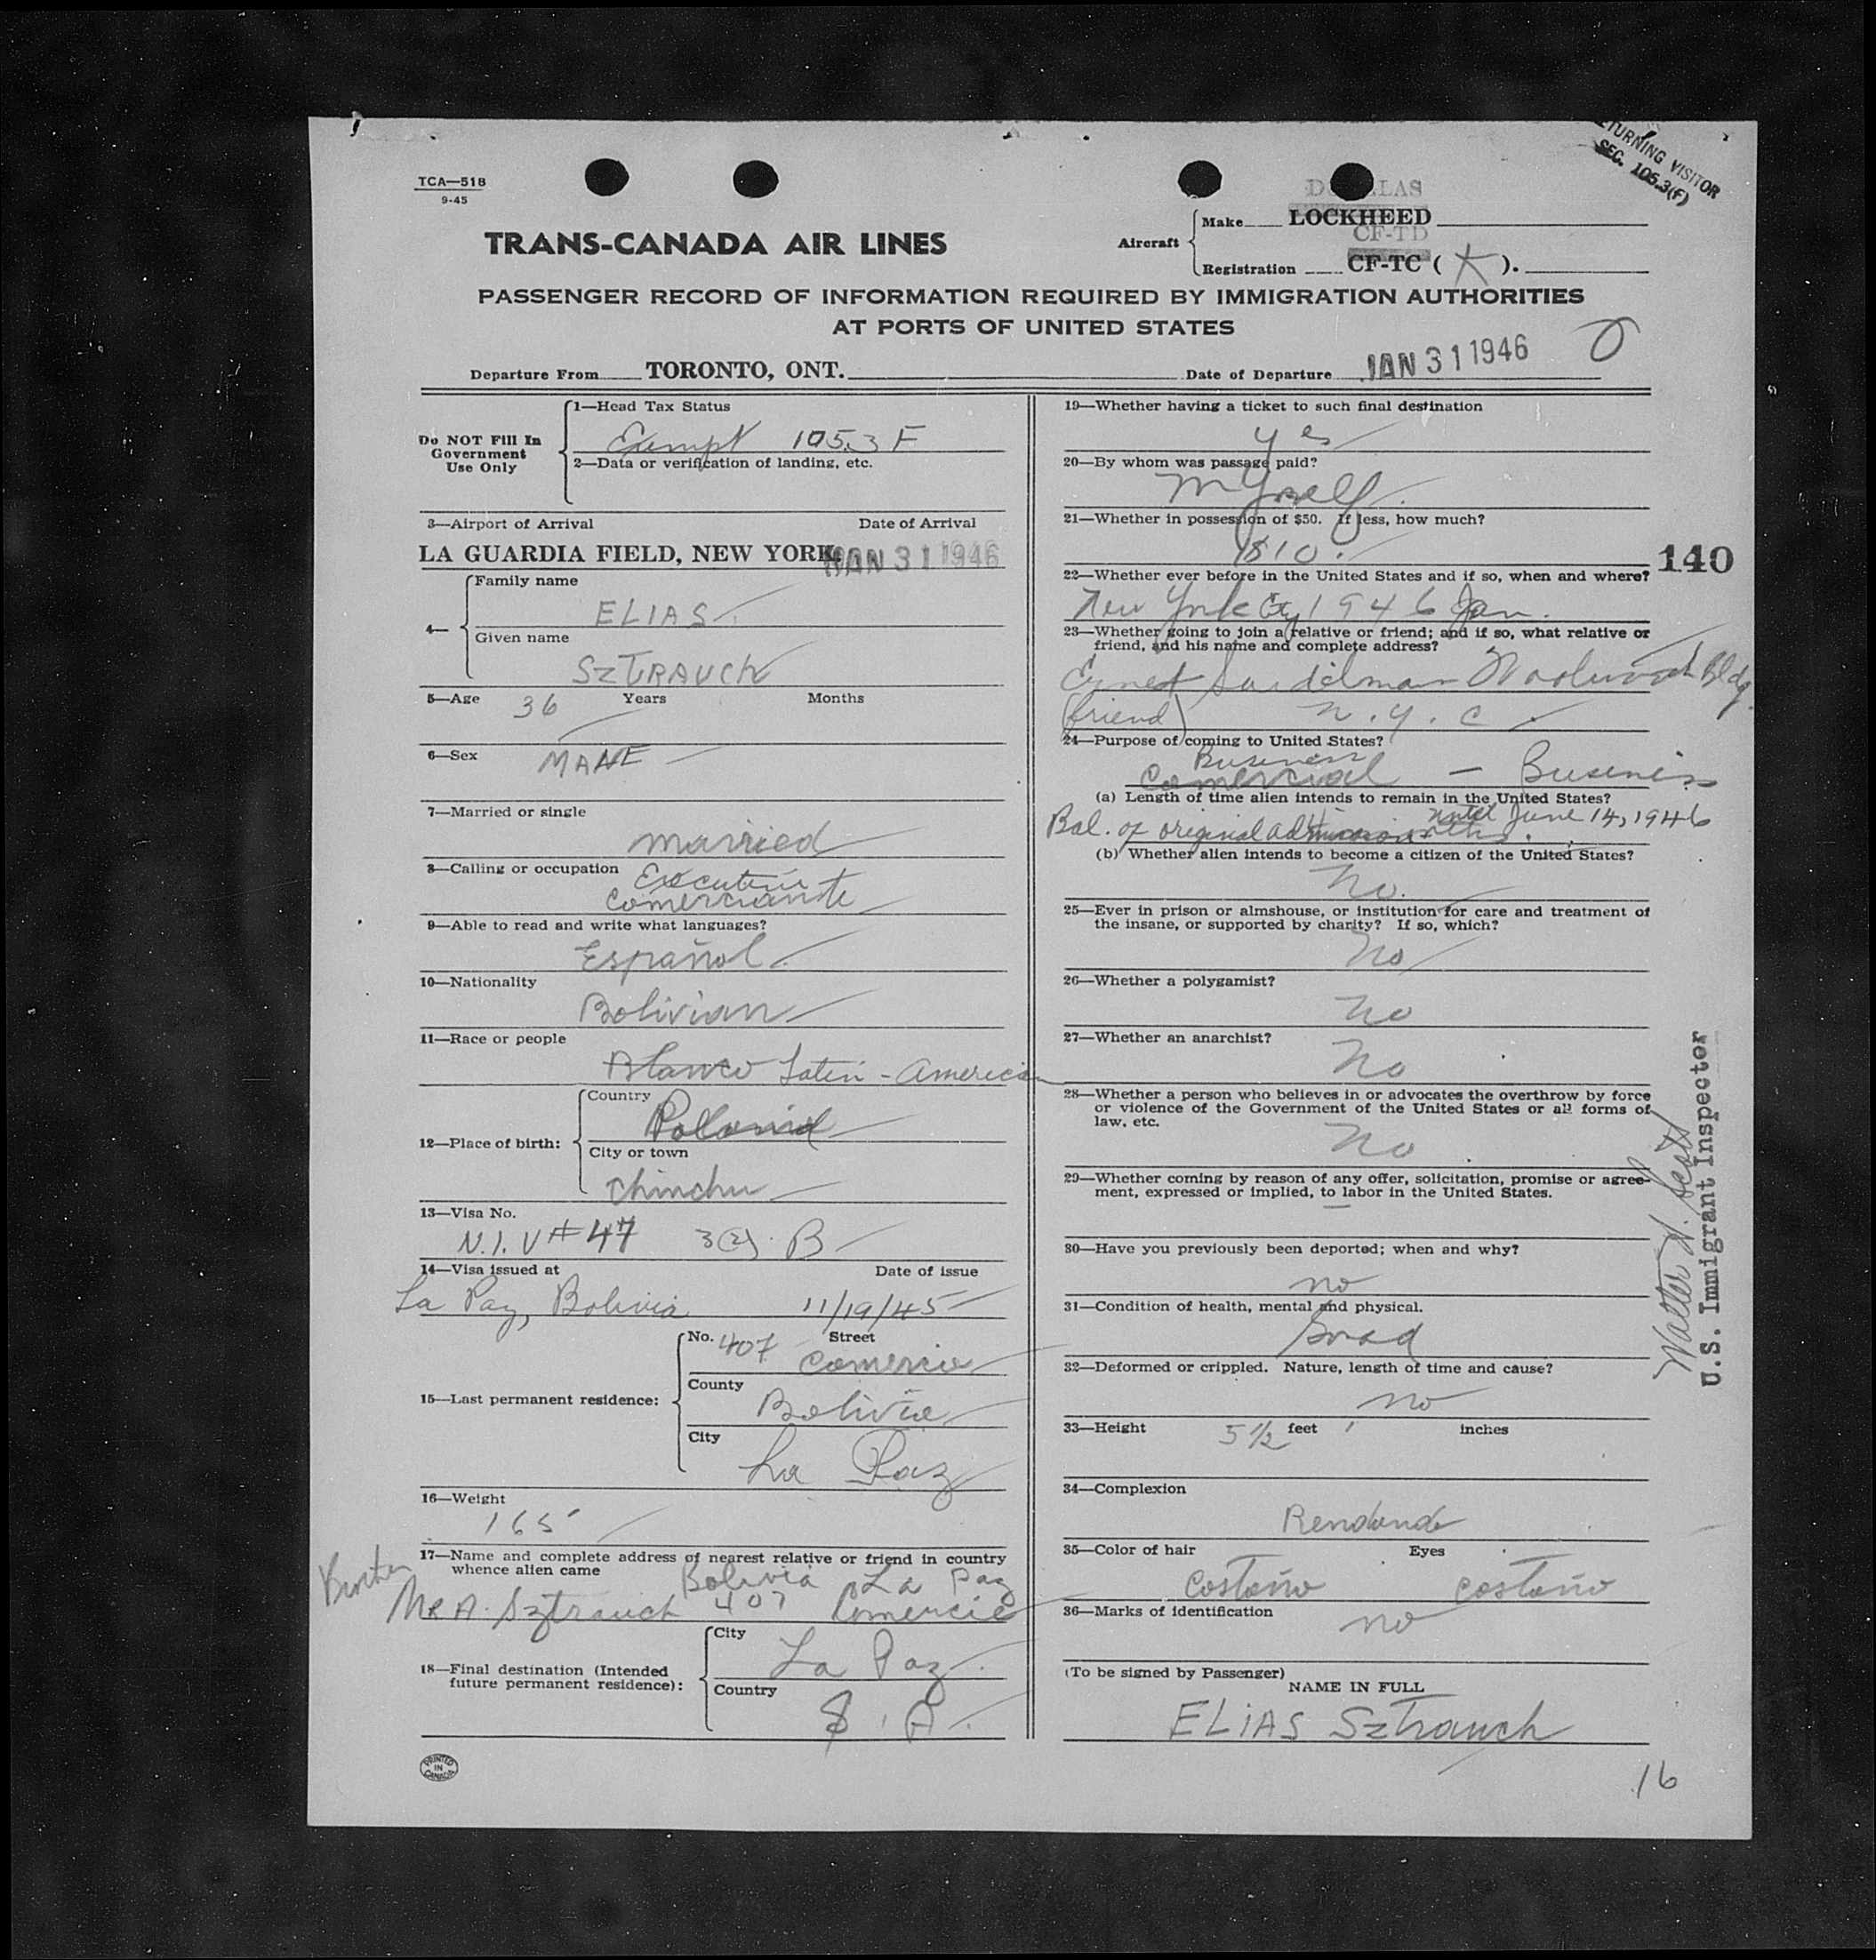 TCA—518
9-45
TURNING VISITOR
SEC. 105.3(F)
TRANS-CANADA AIR LINES
Aircraft
Make LOCKHEED
CF-TD
Registration CF-TC ( K ).
PASSENGER RECORD OF INFORMATION REQUIRED BY IMMIGRATION AUTHORITIES
AT PORTS OF UNITED STATES
Departure From TORONTO, ONT. Date of Departure JAN 31 1946
Do NOT Fill In
Government
Use Only
1—Head Tax Status
Exempt 105.3 F
2—Data or verification of landing, etc.
3—Airport of Arrival Date of Arrival
LA GUARDIA FIELD, NEW YORK JAN 31 1946
4—
Family name
ELIAS
Given name
SZTRAUCH
5—Age 36 Years Months
6—Sex MALE
7—Married or single
married
8—Calling or occupation Executive
Comerciante
9—Able to read and write what languages?
Español
10—Nationality
Bolivian
11—Race or people
Blanco Latin-American
12—Place of birth:
Country
Polonia
City or town
Chinchu
13—Visa No.
N.I.V # 47 3(2) B
14—Visa issued at Date of issue
La Paz, Bolivia 11/19/45
15—Last permanent residence:
No. 407 Street
Comercio
County
Bolivia
City
La Paz
16—Weight
165
17—Name and complete address of nearest relative or friend in country
whence alien came Bolivia La Paz
Mr A. Sztrauch 407 Comercio
18—Final destination (Intended
future permanent residence):
City
La Paz
Country
S. A.
PRINTED
IN
CANADA
19—Whether having a ticket to such final destination
yes
20—By whom was passage paid?
myself
21—Whether in possession of $50. If less, how much?
1810.
140
22—Whether ever before in the United States and if so, when and where?
New York City 1946 Jan.
23—Whether going to join a relative or friend; and if so, what relative or
friend, and his name and complete address?
Ernest Woolworth Bldg.
(friend) N.Y.C.
24—Purpose of coming to United States?
Business
Comercial — Business
(a) Length of time alien intends to remain in the United States?
Bal. of original admission until June 14, 1946
(b) Whether alien intends to become a citizen of the United States?
No.
25—Ever in prison or almshouse, or institution for care and treatment of
the insane, or supported by charity? If so, which?
No
26—Whether a polygamist?
No
27—Whether an anarchist?
No
28—Whether a person who believes in or advocates the overthrow by force
or violence of the Government of the United States or all forms of
law, etc.
No
29—Whether coming by reason of any offer, solicitation, promise or agree-
ment, expressed or implied, to labor in the United States.
30—Have you previously been deported; when and why?
no
31—Condition of health, mental and physical.
Good
32—Deformed or crippled. Nature, length of time and cause?
no
33—Height 5 1/2 feet inches
34—Complexion
35—Color of hair Eyes
Costaño costaño
36—Marks of identification
no
(To be signed by Passenger)
NAME IN FULL
ELIAS Sztrauch
16
Walter N. Scott
U.S. Immigrant Inspector